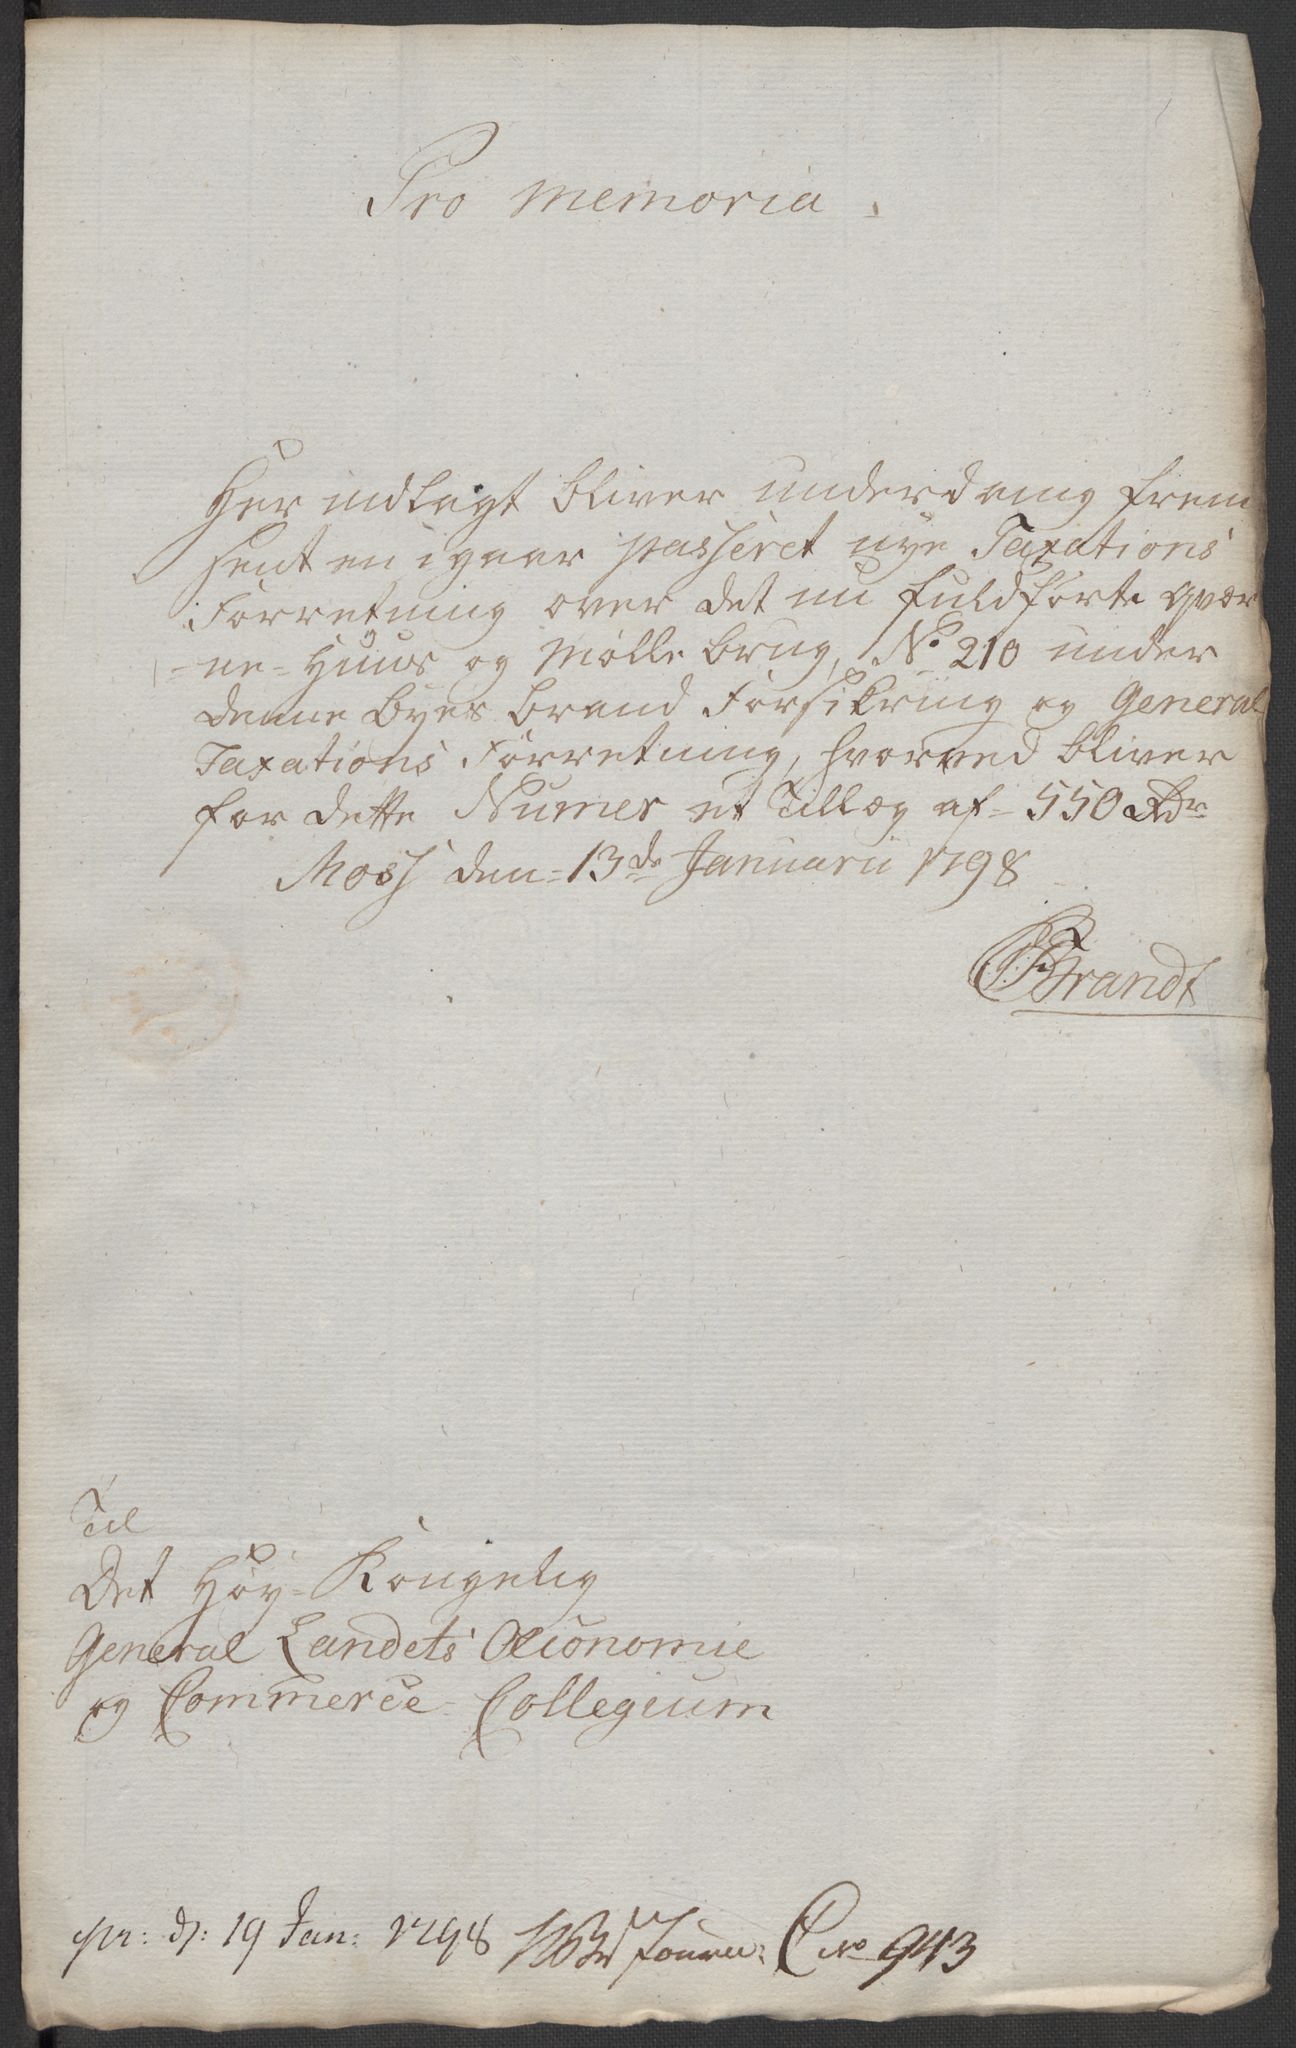 Pro memoria.
Her indlagt bliver underdanig frem
sent en igaar passeret nye Taxations
Forretning over det nu fuldførte qvær
=ne=Huus og Mølle brug, No 210 under
denne Byes brand Forsikring og General
Taxations Forretning, hvorved bliver
for dette Numer et Tillæg af = 550 Rdr
Moss den = 13de Januarii 1798
Brandt
Til
Det Høy=Kongelig
General Landets Œconomie
og Commerce Collegium
pr: d: 19 Jan: 1798 Journ: C No 943